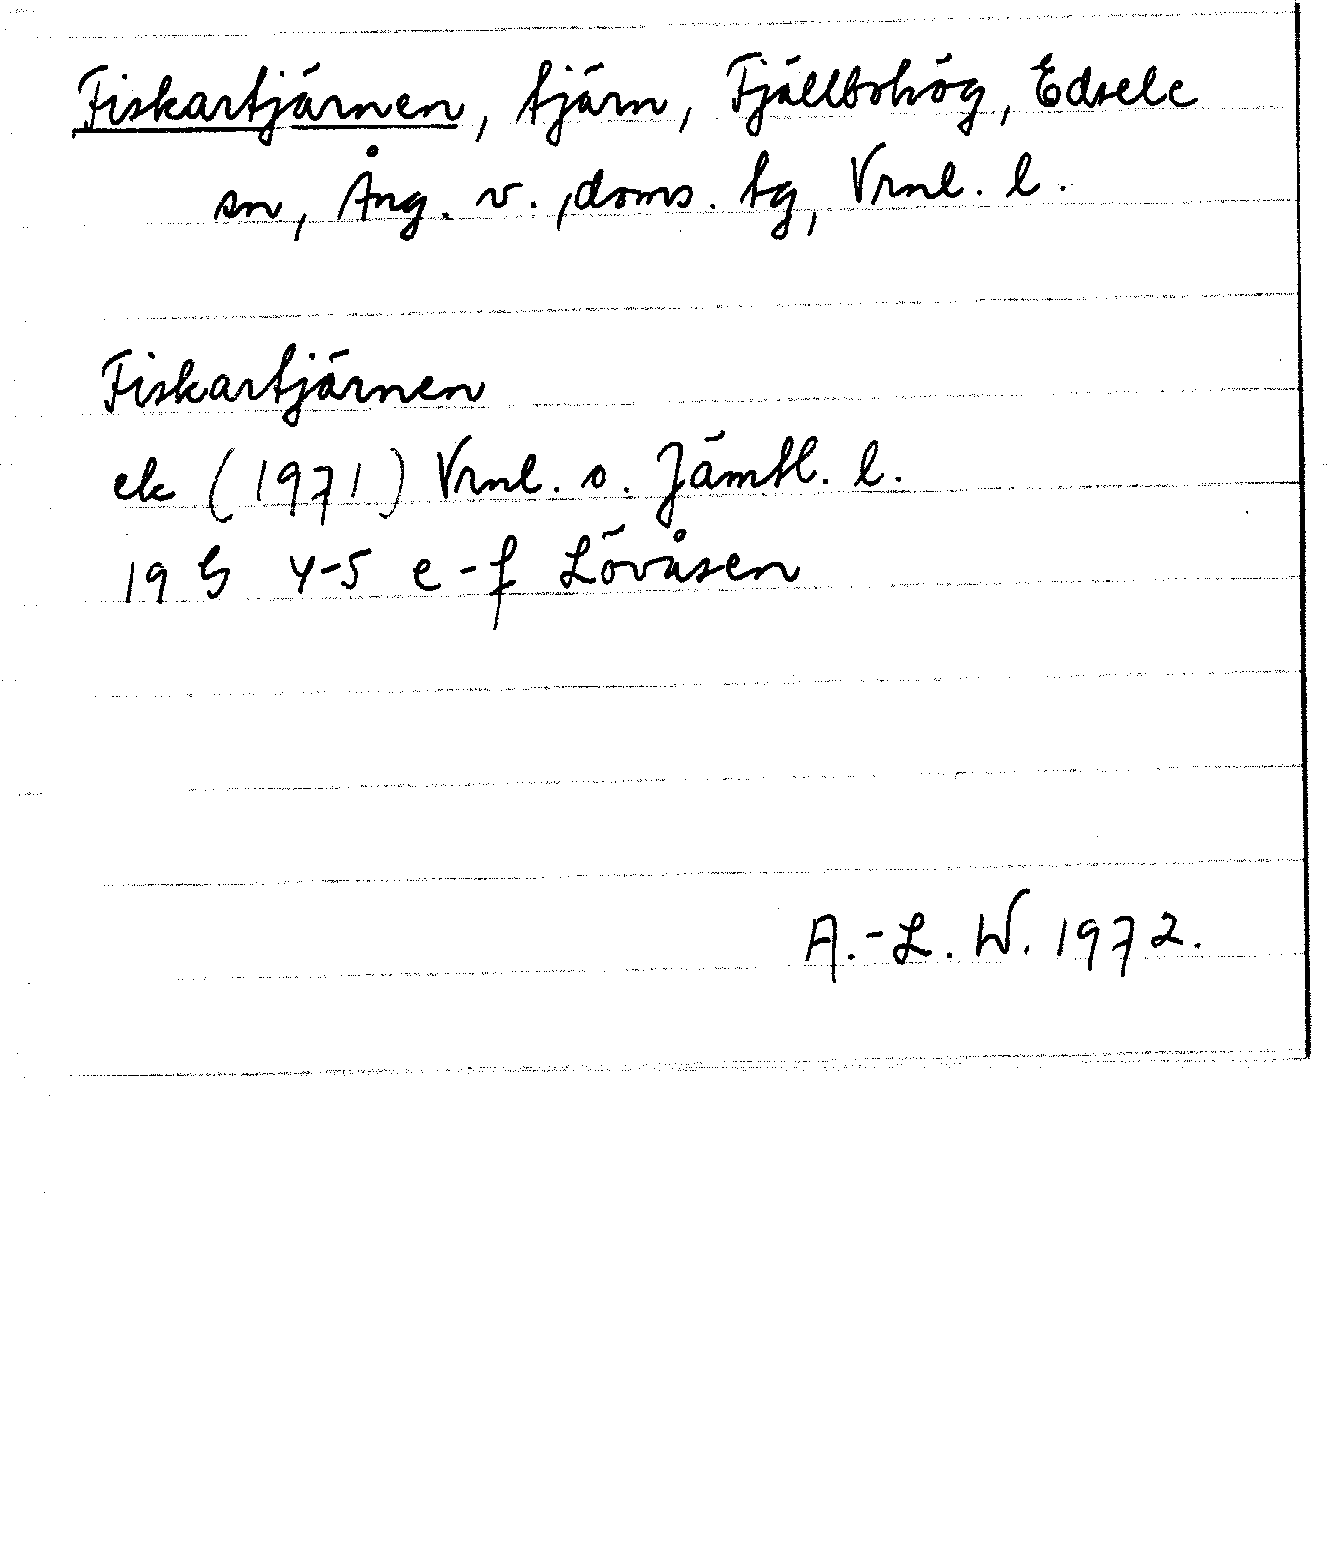 Fiskartjärnen, tjärn, Fjällbohög, Edsele
sn, Ång. v., doms. tg, Vrnl. l.
Fiskartjärnen
ek (1971) Vrnl. o. Jämtl. l.
19 G 4-5 e-f Lövåsen
A.-L. W. 1972.